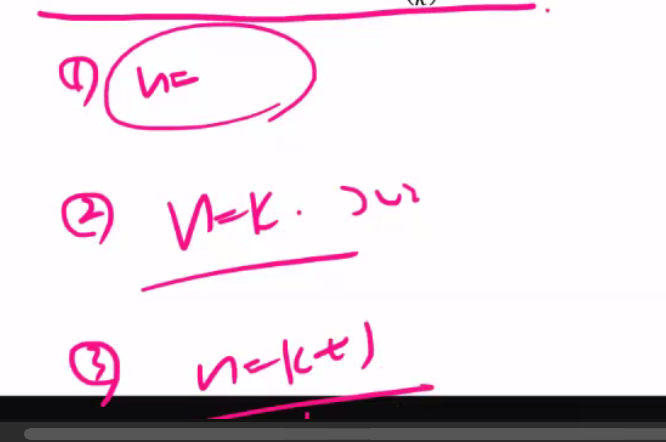 (k)
① n=
② n=k.
③ n=k+1